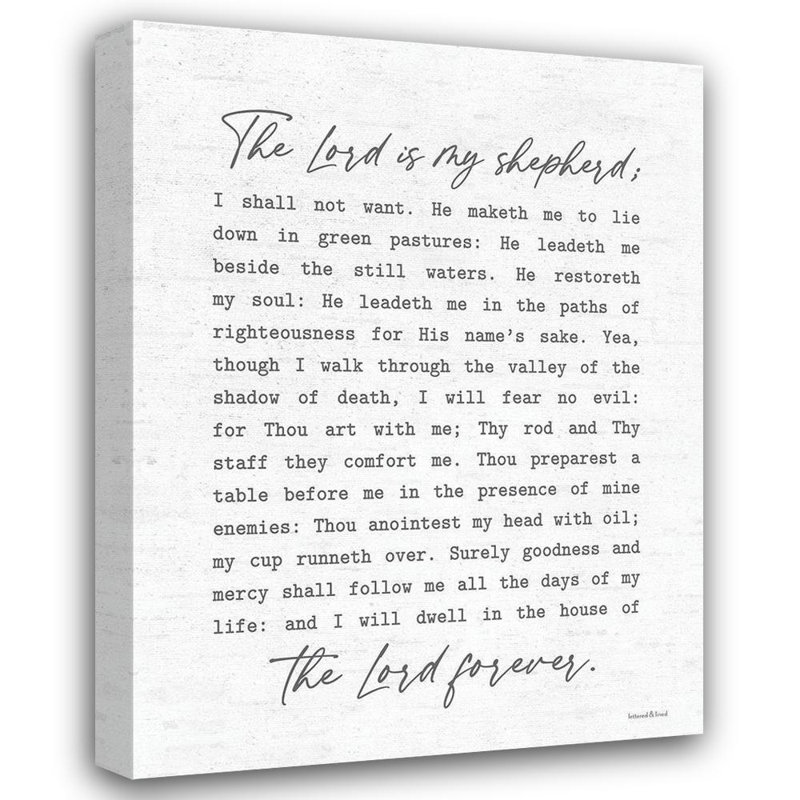 The Lord is my shepherd;
I shall not want. He maketh me to lie
down in green pastures: He leadeth me
beside the still waters. He restoreth
my soul: He leadeth me in the paths of
righteousness for His name's sake. Yea,
though I walk through the valley of the
shadow of death, I will fear no evil:
for Thou art with me; Thy rod and Thy
staff they comfort me. Thou preparest a
table before me in the presence of mine
enemies: Thou anointest my head with oil;
my cup runneth over. Surely goodness and
mercy shall follow me all the days of my
life: and I will dwell in the house of
the Lord forever.
lettered & lined